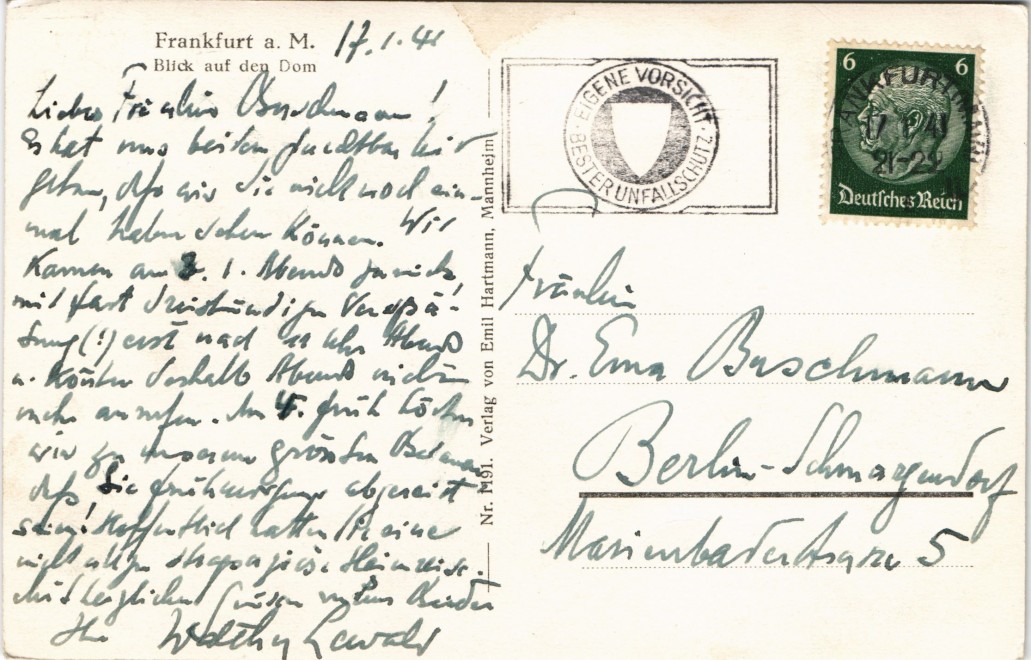 Frankfurt a. M.
Blick auf den Dom
17.1.41
Liebes Fräulein Buschmann!
Es hat uns beiden furchtbar leid
getan, daß wir Sie nicht noch ein-
mal haben sehen können. Wir
kamen am 3. 1. Abends zurück,
mit fast dreistündiger Verspä-
tung (!) erst nach 11 Uhr Abends
u. konnten deshalb Abends nicht
mehr anrufen. Am 4. früh hörten
wir zu unserem größten Bedauern
daß Sie frühmorgens abgereist
seien! Hoffentlich hatten Sie eine
nicht allzu strapaziöse Heimreise.
Mit herzlichen Grüßen von uns Beiden
Ihr
Nr. 1191. Verlag von Emil Hartmann, Mannheim
EIGENE VORSICHT
BESTER UNFALLSCHUTZ
6 6
Deutsches Reich
FRANKFURT (MAIN)
17.1.41
21-22
Fräulein
Dr. Erna Buschmann
Berlin-Schmargendorf
Marienbaderstrasse 5